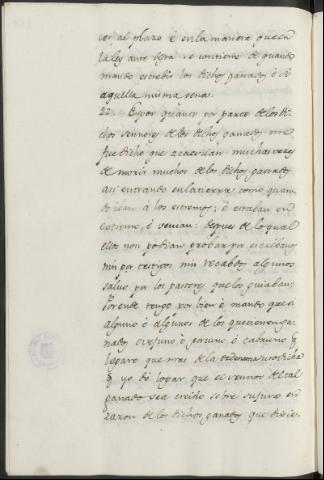 cer al plazo é en la manera que en
la ley ante desta se contiene de quando
mando escrebir los dichos ganados, é de
aquella misma pena.
22. E Por quanto por parte de los di-
chos sennores de los dichos ganados me
fue dicho que acaescian muchas veces
de morir muchos de los dichos ganados
asi entrando en la tierra como quan-
do iban á los estremos; é estaban en
estremo, é venian: despues de lo qual
ellos non podian probar por escribano
nin por testigos nin recabdo algunos
salvo por los pastores que los guiaban,
Por ende tengo por bien é mando que si
alguno ó algunos de los que tienen ga-
nados ovejuno é porcuno é cabruno
logare que mas de la ordenanza sobredicha
yo dó logar que el sennor del tal
ganado sea creido sobre su jura en
razon de los dichos ganados que dixie-